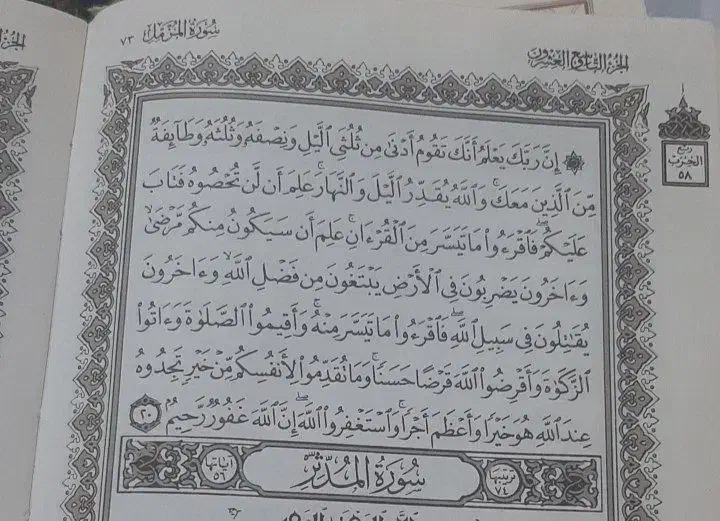 سُورَةُ المُزَّمِّلِ ٧٣
الجُزْءُ التَّاسِعُ وَالعِشْرُونَ
ربع
الحزب
٥٨
۞ إِنَّ رَبَّكَ يَعْلَمُ أَنَّكَ تَقُومُ أَدْنَىٰ مِن ثُلُثَيِ ٱلَّيْلِ وَنِصْفَهُۥ وَثُلُثَهُۥ وَطَآئِفَةٌ
مِّنَ ٱلَّذِينَ مَعَكَۚ وَٱللَّهُ يُقَدِّرُ ٱلَّيْلَ وَٱلنَّهَارَۚ عَلِمَ أَن لَّن تُحْصُوهُ فَتَابَ
عَلَيْكُمْۖ فَٱقْرَءُوا۟ مَا تَيَسَّرَ مِنَ ٱلْقُرْءَانِۚ عَلِمَ أَن سَيَكُونُ مِنكُم مَّرْضَىٰۙ
وَءَاخَرُونَ يَضْرِبُونَ فِى ٱلْأَرْضِ يَبْتَغُونَ مِن فَضْلِ ٱللَّهِۙ وَءَاخَرُونَ
يُقَـٰتِلُونَ فِى سَبِيلِ ٱللَّهِۖ فَٱقْرَءُوا۟ مَا تَيَسَّرَ مِنْهُۚ وَأَقِيمُوا۟ ٱلصَّلَوٰةَ وَءَاتُوا۟
ٱلزَّكَوٰةَ وَأَقْرِضُوا۟ ٱللَّهَ قَرْضًا حَسَنًاۚ وَمَا تُقَدِّمُوا۟ لِأَنفُسِكُم مِّنْ خَيْرٍ تَجِدُوهُ
عِندَ ٱللَّهِ هُوَ خَيْرًا وَأَعْظَمَ أَجْرًاۚ وَٱسْتَغْفِرُوا۟ ٱللَّهَۖ إِنَّ ٱللَّهَ غَفُورٌ رَّحِيمٌۢ ٢٠
ترتيبها ٧٤ سُورَةُ المُدَّثِّر آياتها ٥٦